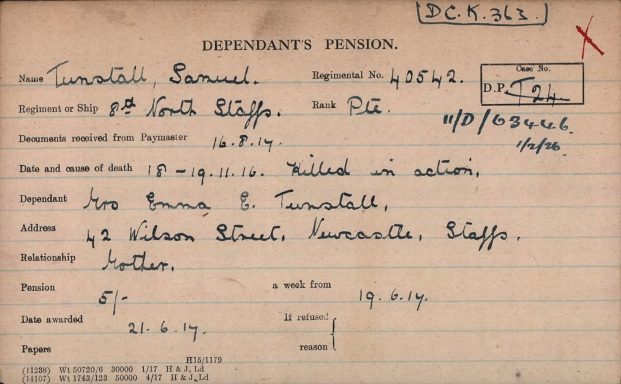 [D.C.K. 363.]
X
DEPENDANT'S PENSION.
Name Tunstall, Samuel. Regimental No. 40542. Case No.
D.P. T24
Regiment or Ship 8th North Staffs. Rank Pte.
11/D/63446
1/2/26
Documents received from Paymaster 16.8.17.
Date and cause of death 18-19.11.16. Killed in action.
Dependant Mrs Emma E. Tunstall,
Address 42 Wilson Street, Newcastle, Staffs.
Relationship Mother.
Pension 5/- a week from 19.6.17.
Date awarded 21.6.17. If refused
reason {
Papers
H15/1179
(11238) Wt 50720/6 30000 1/17 H & J, Ld
(14107) Wt 1743/123 50000 4/17 H & J, Ld